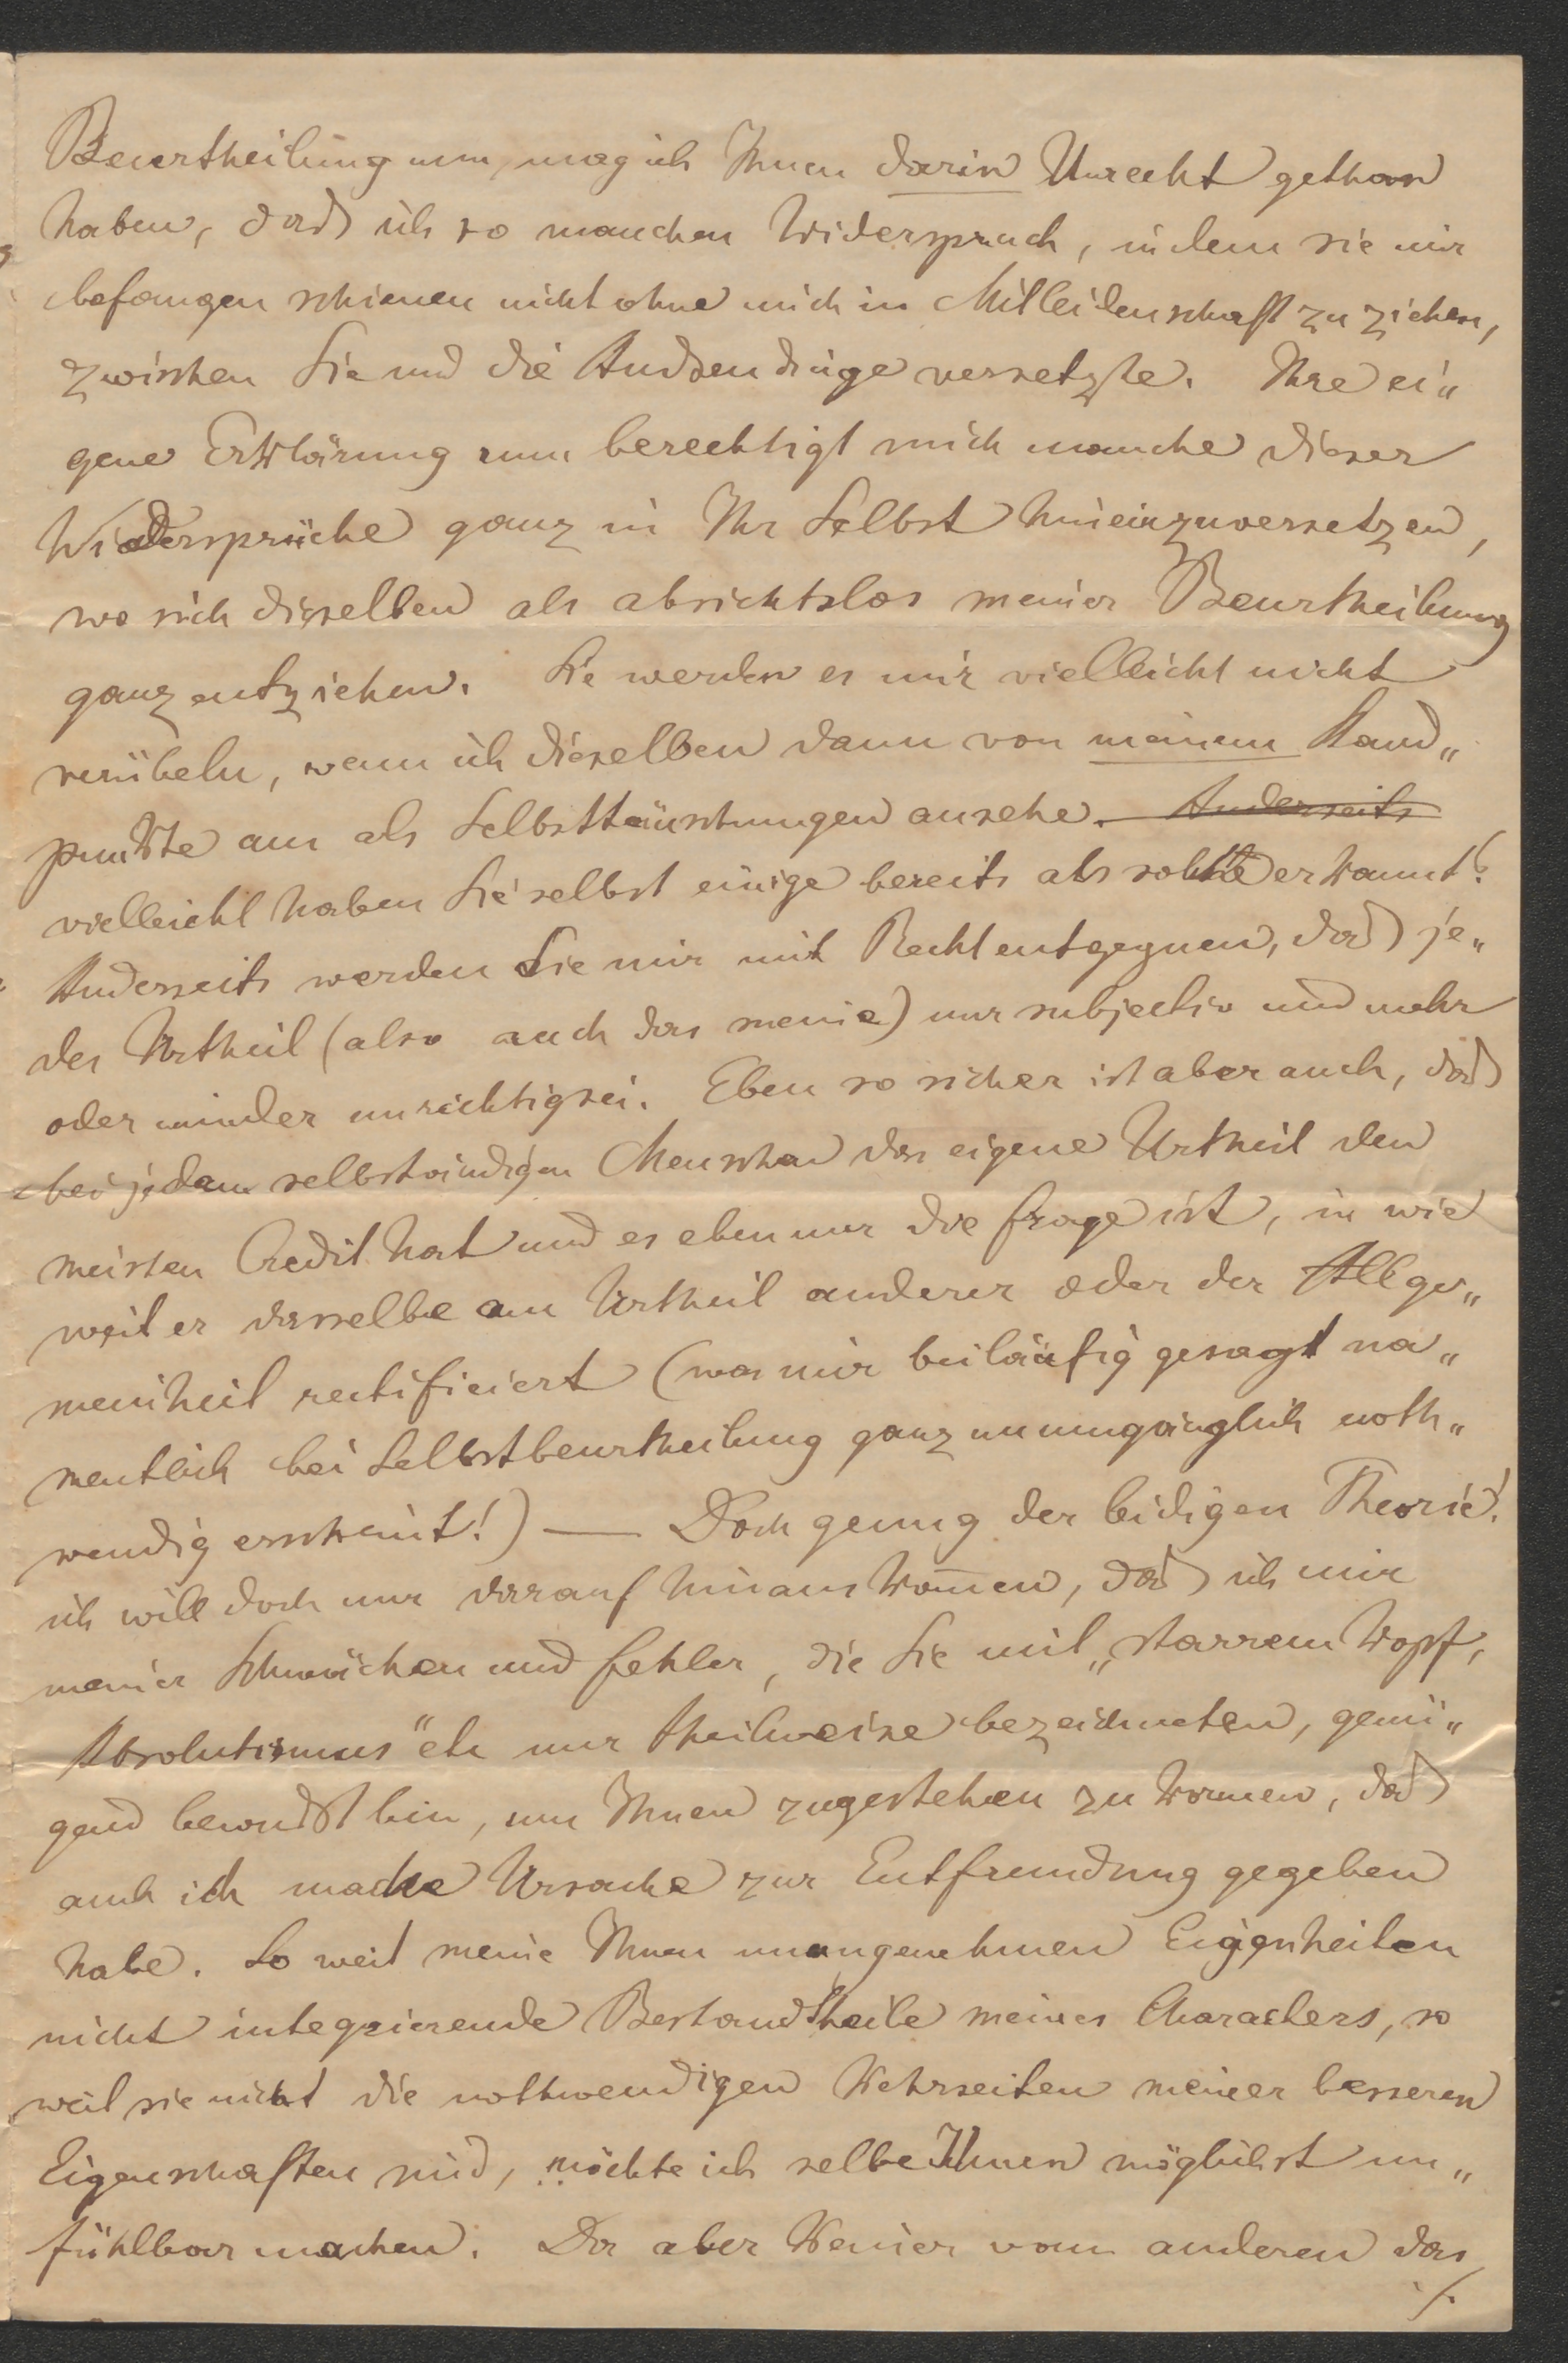 Beurtheilung nun, mag ich Ihnen darin Unrecht gethan
haben, daß ich so manchen Widerspruch, in dem sie mir
befangen schienen nicht ohne mich in Mitleidenschaft zu ziehen,
zwischen Sie und die Außendinge versetzte. Ihre ei„
gene Erklärung nun berechtigt mich manche dieser
Widersprüche ganz in Ihr Selbst hineinzuversetzen,
wo sich dieselben als absichtslos meiner Beurtheilung
ganz entziehen. Sie werden es mir vielleicht nicht
verübeln, wenn ich dieselben dann von meinem Stand„
punkte aus als Selbsttäuschungen ansehe. Anderseits
vielleicht haben Sie selbst einige bereits als solche erkannt?
Anderseits werden Sie mir mit Recht entgegnen, daß je„
des Urtheil (also auch das meine) nur subjectiv und mehr
oder minder unrichtig sei. Eben so sicher ist aber auch, daß
bei jedem selbständigen Menschen das eigene Urtheil den
meisten Credit hat und es eben nur die Frage ist, in wie
weit er dasselbe am Urtheil anderer oder der Allge„
meinheit rectificiert (was mir beiläufig gesagt na„
mentlich bei Selbstbeurtheilung ganz unumgänglich noth„
wendig erscheint!) — Doch genug der leidigen Theorie!
ich will doch nur darauf hinaus kom̅en, daß ich mir
meiner Schwächen und Fehler, die Sie mit „starrem Kopf,
Absolutismus" etc nur theilweise bezeichneten, genü„
gend bewußt bin, um Ihnen zugestehen zu können, daß
auch ich manche Ursache zur Entfremdung gegeben
habe. So weit meine Ihnen unangenehmen Eigenheiten
nicht integrierende Bestandtheile meines Characters, so
weit sie nicht die nothwendigen Kehrseiten meiner besseren
Eigenschaften sind, möchte ich selbe Ihnen möglichst un„
fühlbar machen. Da aber Keiner vom anderen das
./.